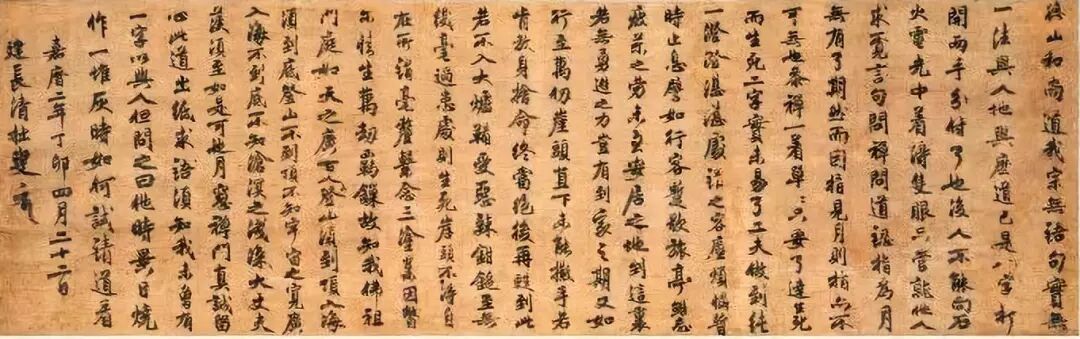 德山和尚道我宗無語句實無
一法與人他與麽道已是八字打
開兩手分付了也後人不能向石
火電光中着得隻眼只管就他人
求覓言句問禪問道認指為月
無有了期然而因指見月則指亦不
可無也參禪一着單々只要了達生死
而生死二字實未易了工夫做到純
一澄澄湛湛處謂之客塵煩惱暫
時止息譬如行客暫歇旅亭雖忘
疲苶之勞未立安居之地到這裏
若無勇進之力豈有到家之期又如
行至萬仞崖頭直下未能撒手若
肯放身捨命終當絕後再甦到此
若不入大爐鞴受惡辣鉗鎚至無
纖毫過患處則生死岸頭不得自
在所謂毫釐繫念三塗業因瞥
尒情生萬劫羈鎖故知我佛祖
門庭如天之廣登山須到頂入海
須到底登山不到頂不知宇宙之寬廣
入海不到底不知滄溟之淺深大丈夫
漢須至如是可也月窓禪門真誠留
心此道出紙求語須知我未曾有
一字以與人但問之曰他時異日燒
作一堆灰時如何試請道看
嘉曆二年丁卯四月二十二日
建長清拙叟